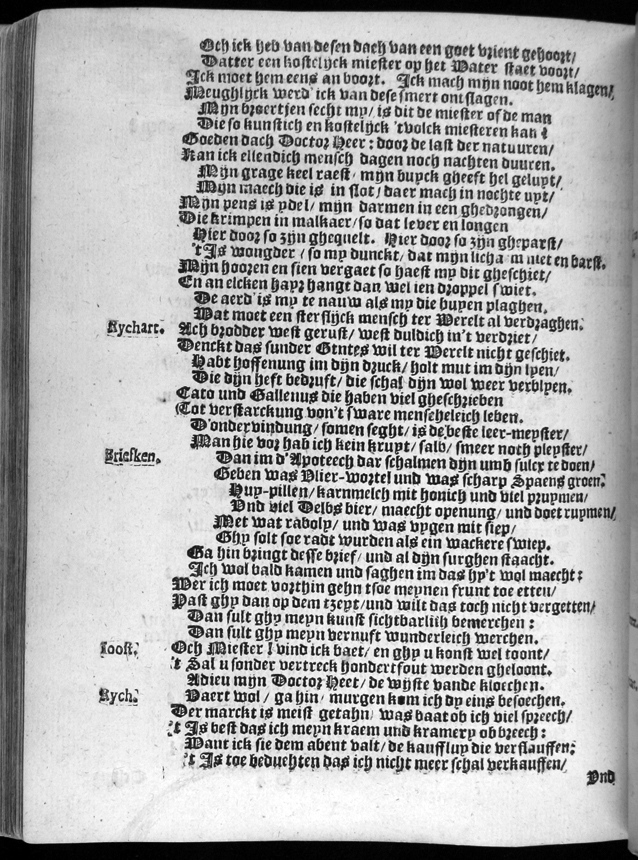 Och ick heb van desen dach van een goet vrient gehoort/
Datter een kostelyck miester op het Water staet voort/
Ick moet hem eens an boort. Ick mach mijn noot hem klagen/
Meughlyck werd' ick van dese smert ontslagen.
Mijn broertjen secht my/ is dit de miester of de man
Die so kunstich en kostelyck 'tvolck miesteren kan?
Goeden dach Doctor Heer: door de last der natuuren/
Kan ick ellendich mensch dagen noch nachten duuren.
Mijn grage keel raest/ mijn buyck gheeft hel geluyt/
Mijn maech die is in slot/ daer mach in nochte uyt/
Mijn pens is ydel/ mijn darmen in een ghedrongen/
Die krimpen in malkaer/ so dat lever en longen
Hier door so zijn ghequelt. Hier door so zijn gheparst/
't Is wongder/ so my dunckt/ dat mijn lichaam niet en barst.
Mijn hooren en sien vergaet so haest my dit gheschiet/
En an elcken hayr hangt dan wel ien droppel swiet.
De aerd' is my te nauw als my die buyen plaghen.
Wat moet een sterflijck mensch ter Werelt al verdraghen.
Rychart. Ach brodder west gerust/ west duldich in't verdriet/
Denckt das sunder Gtntes wil ter Werelt nicht geschiet.
Habt hoffenung im dijn druck/ holt mut im dijn lyen/
Die dijn heft bedruft/ die schal dijn wol weer verblyen.
Cato und Gallenus die haben viel gheschrieben
Tot verstarckung von't sware menscheleich leben.
D'ondervindung/ somen seght/ is de beste leer-meyster/
Man hie vor hab ich kein kruyt/ salb/ smeer noth pleyster/
Briefken. Dan im d'Apoteech dar schalmen dijn umb sulcx te doen/
Geben was Vlier-wortel und was scharp Spaens groen.
Huy-pillen/ karnmelch mit honich und viel pruymen/
Vnd viel Delbs bier/ maecht openung/ und doet ruymen/
Met wat raboly/ und was vygen mit siep/
Ghy solt soe radt wurden als ein wackere swiep.
Ga hin bringt desse brief/ und al dijn surghen staacht.
Ich wol bald kamen und saghen im das hy't wol maecht:
Wer ich moet vorthin gehn tsoe meynen frunt toe etten/
Past ghy dan op dem tzeyt/ und wilt das toch nicht vergetten/
Dan sult ghy meyn kunst sichtbarliih bemerchen:
Dan sult ghy meyn vernuft wunderleich werchen.
Joost. Och Miester! vind ick baet/ en ghy u konst wel toont/
't Sal u sonder vertreck hondertfout werden gheloont.
Adieu mijn Doctor Heet/ de wijste vande kloecken.
Rych. Vaert wol/ ga hin/ murgen kom ich dy eins besoechen.
Der marckt is meist getahn/ was baat ob ich viel spreech/
't Is best das ich meyn kraem und kramery ob breech:
Want ick sie dem abent valt/ de kauffluy die verflauffen:
't Is toe beduchten das ich nicht meer schal verkauffen/
Vnd